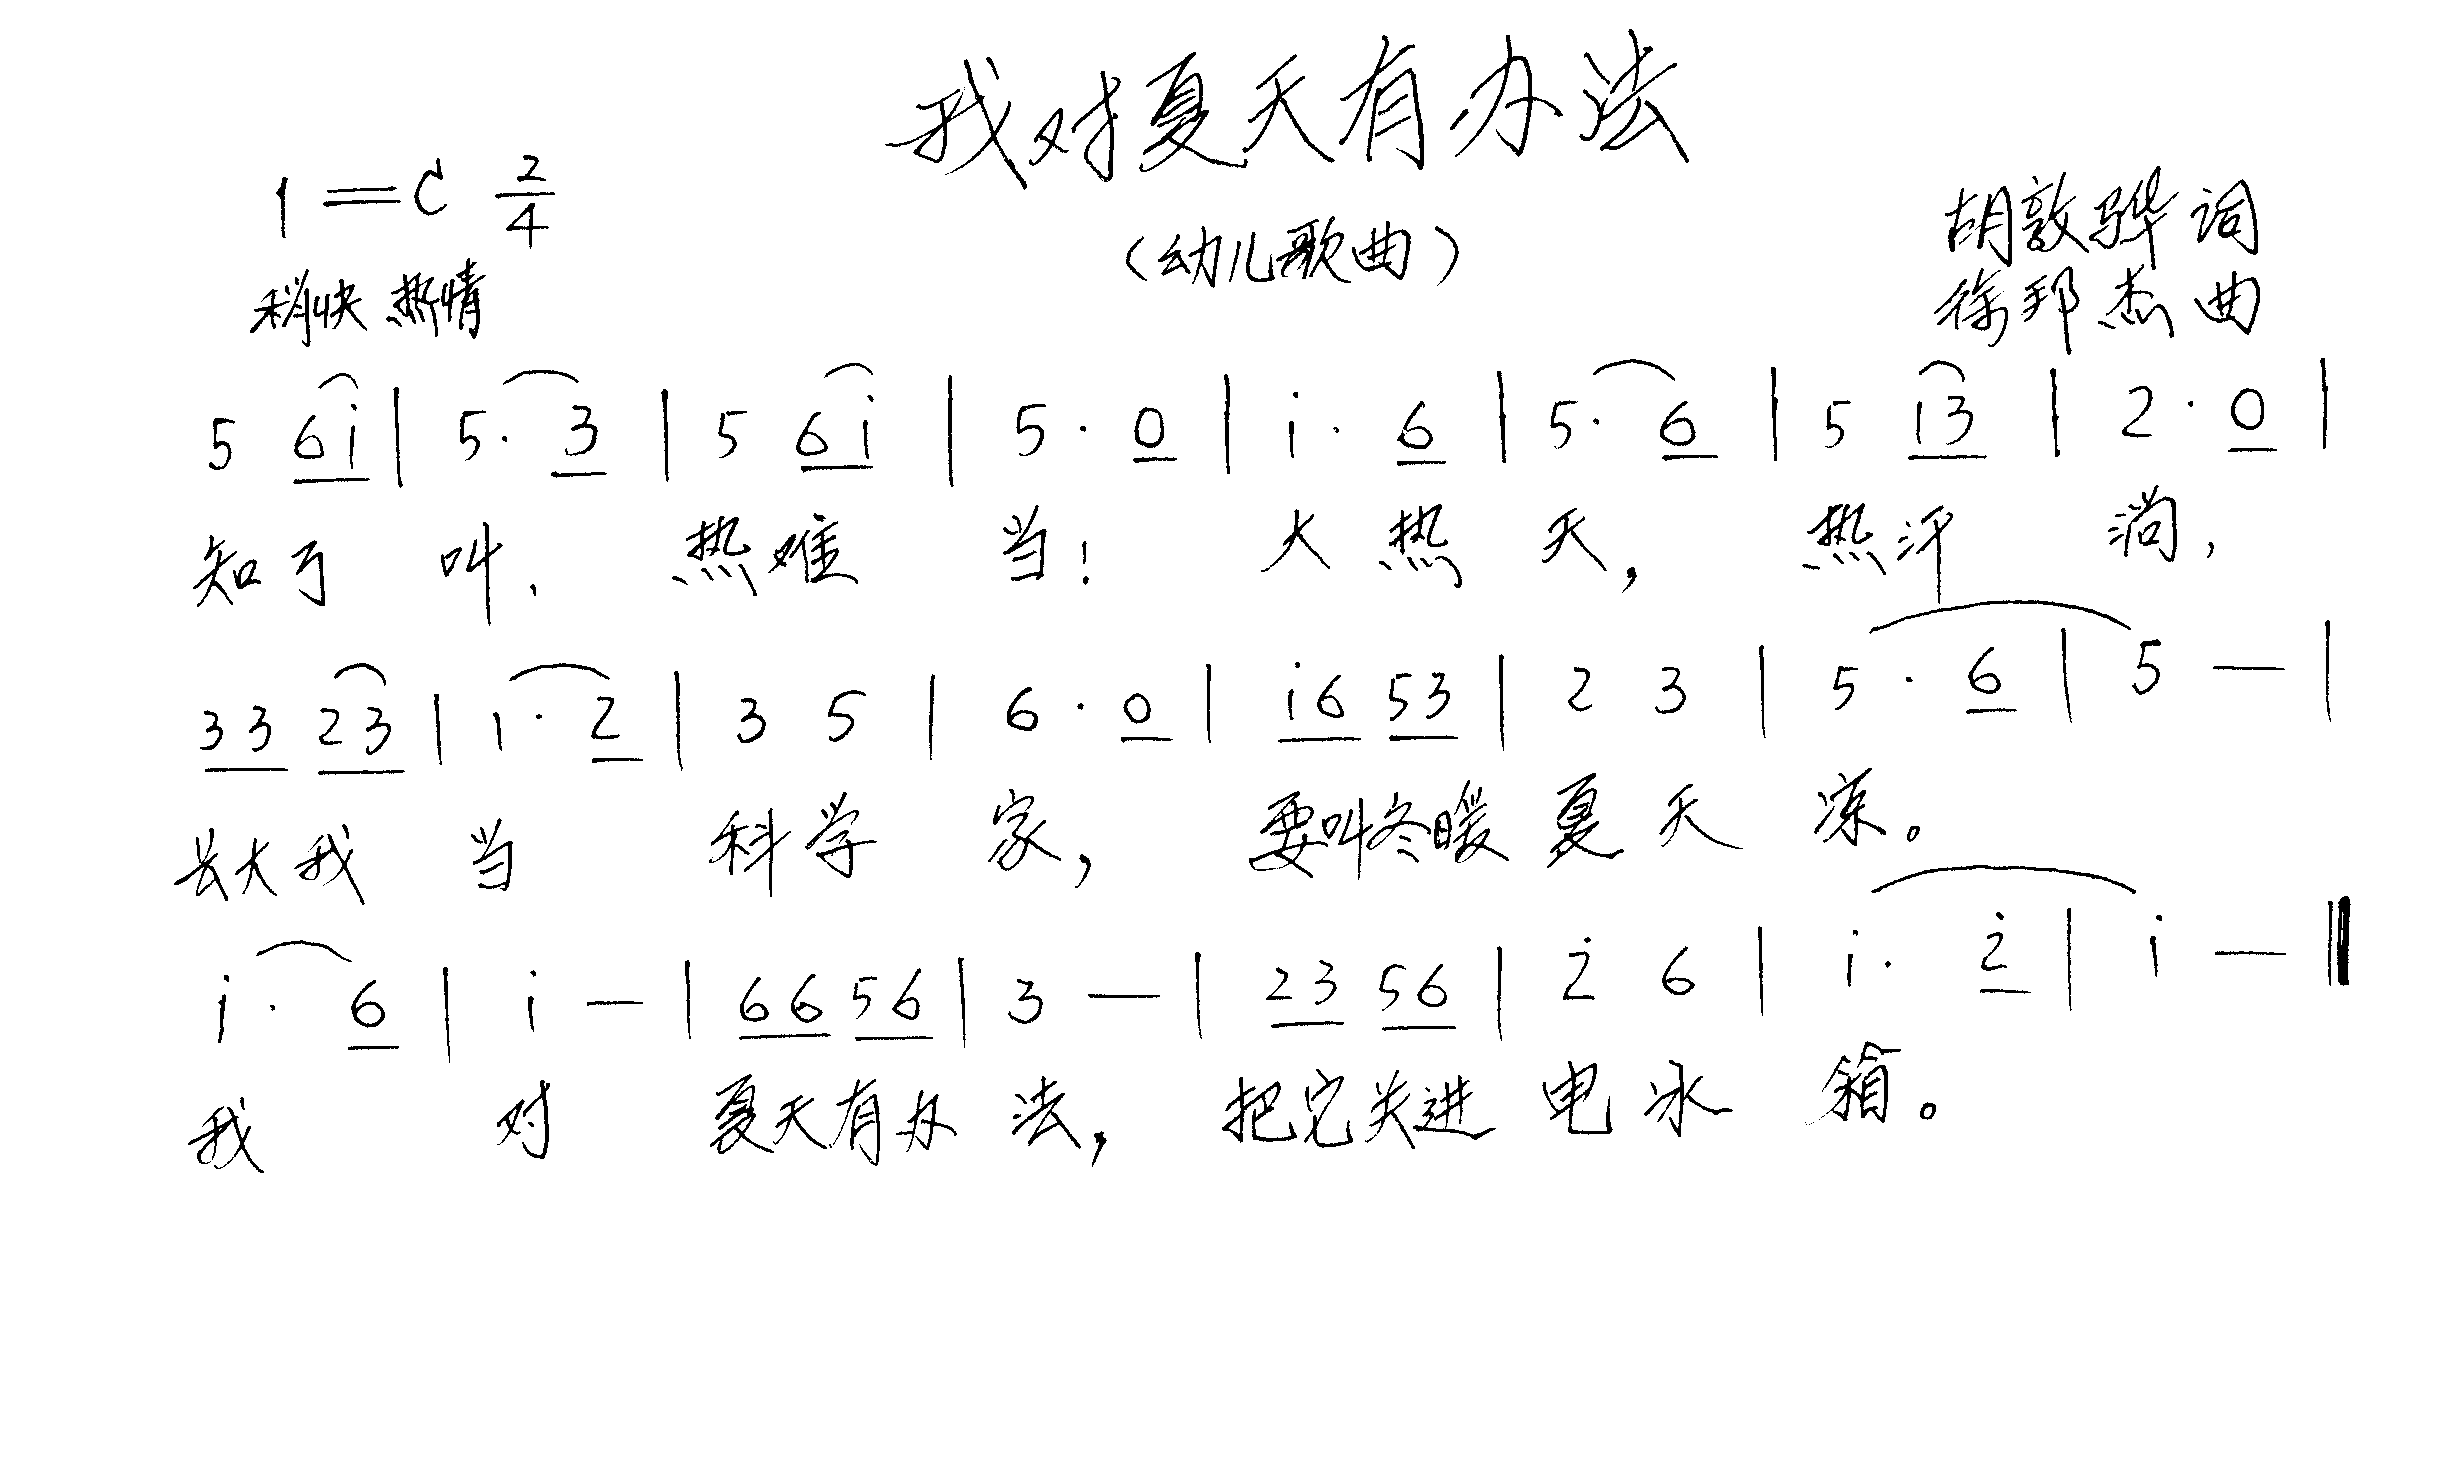 我对夏天有办法
1=C 2/4
(幼儿歌曲)
胡敦骅词
稍快 热情
徐邦杰曲
5 6i | 5· 3 | 5 6i | 5· 0 | i· 6 | 5· 6 | 5 13 | 2· 0 |
知了 叫, 热难 当! 大热 天, 热汗 淌,
33 23 | 1· 2 | 3 5 | 6· 0 | i6 53 | 2 3 | 5· 6 | 5 — |
长大我 当 科学 家, 要叫冬暖 夏天 凉。
i· 6 | i — | 66 56 | 3 — | 23 56 | 2̇ 6 | i· 2̇ | i — ‖
我 对 夏天有办 法, 把它关进 电冰 箱。